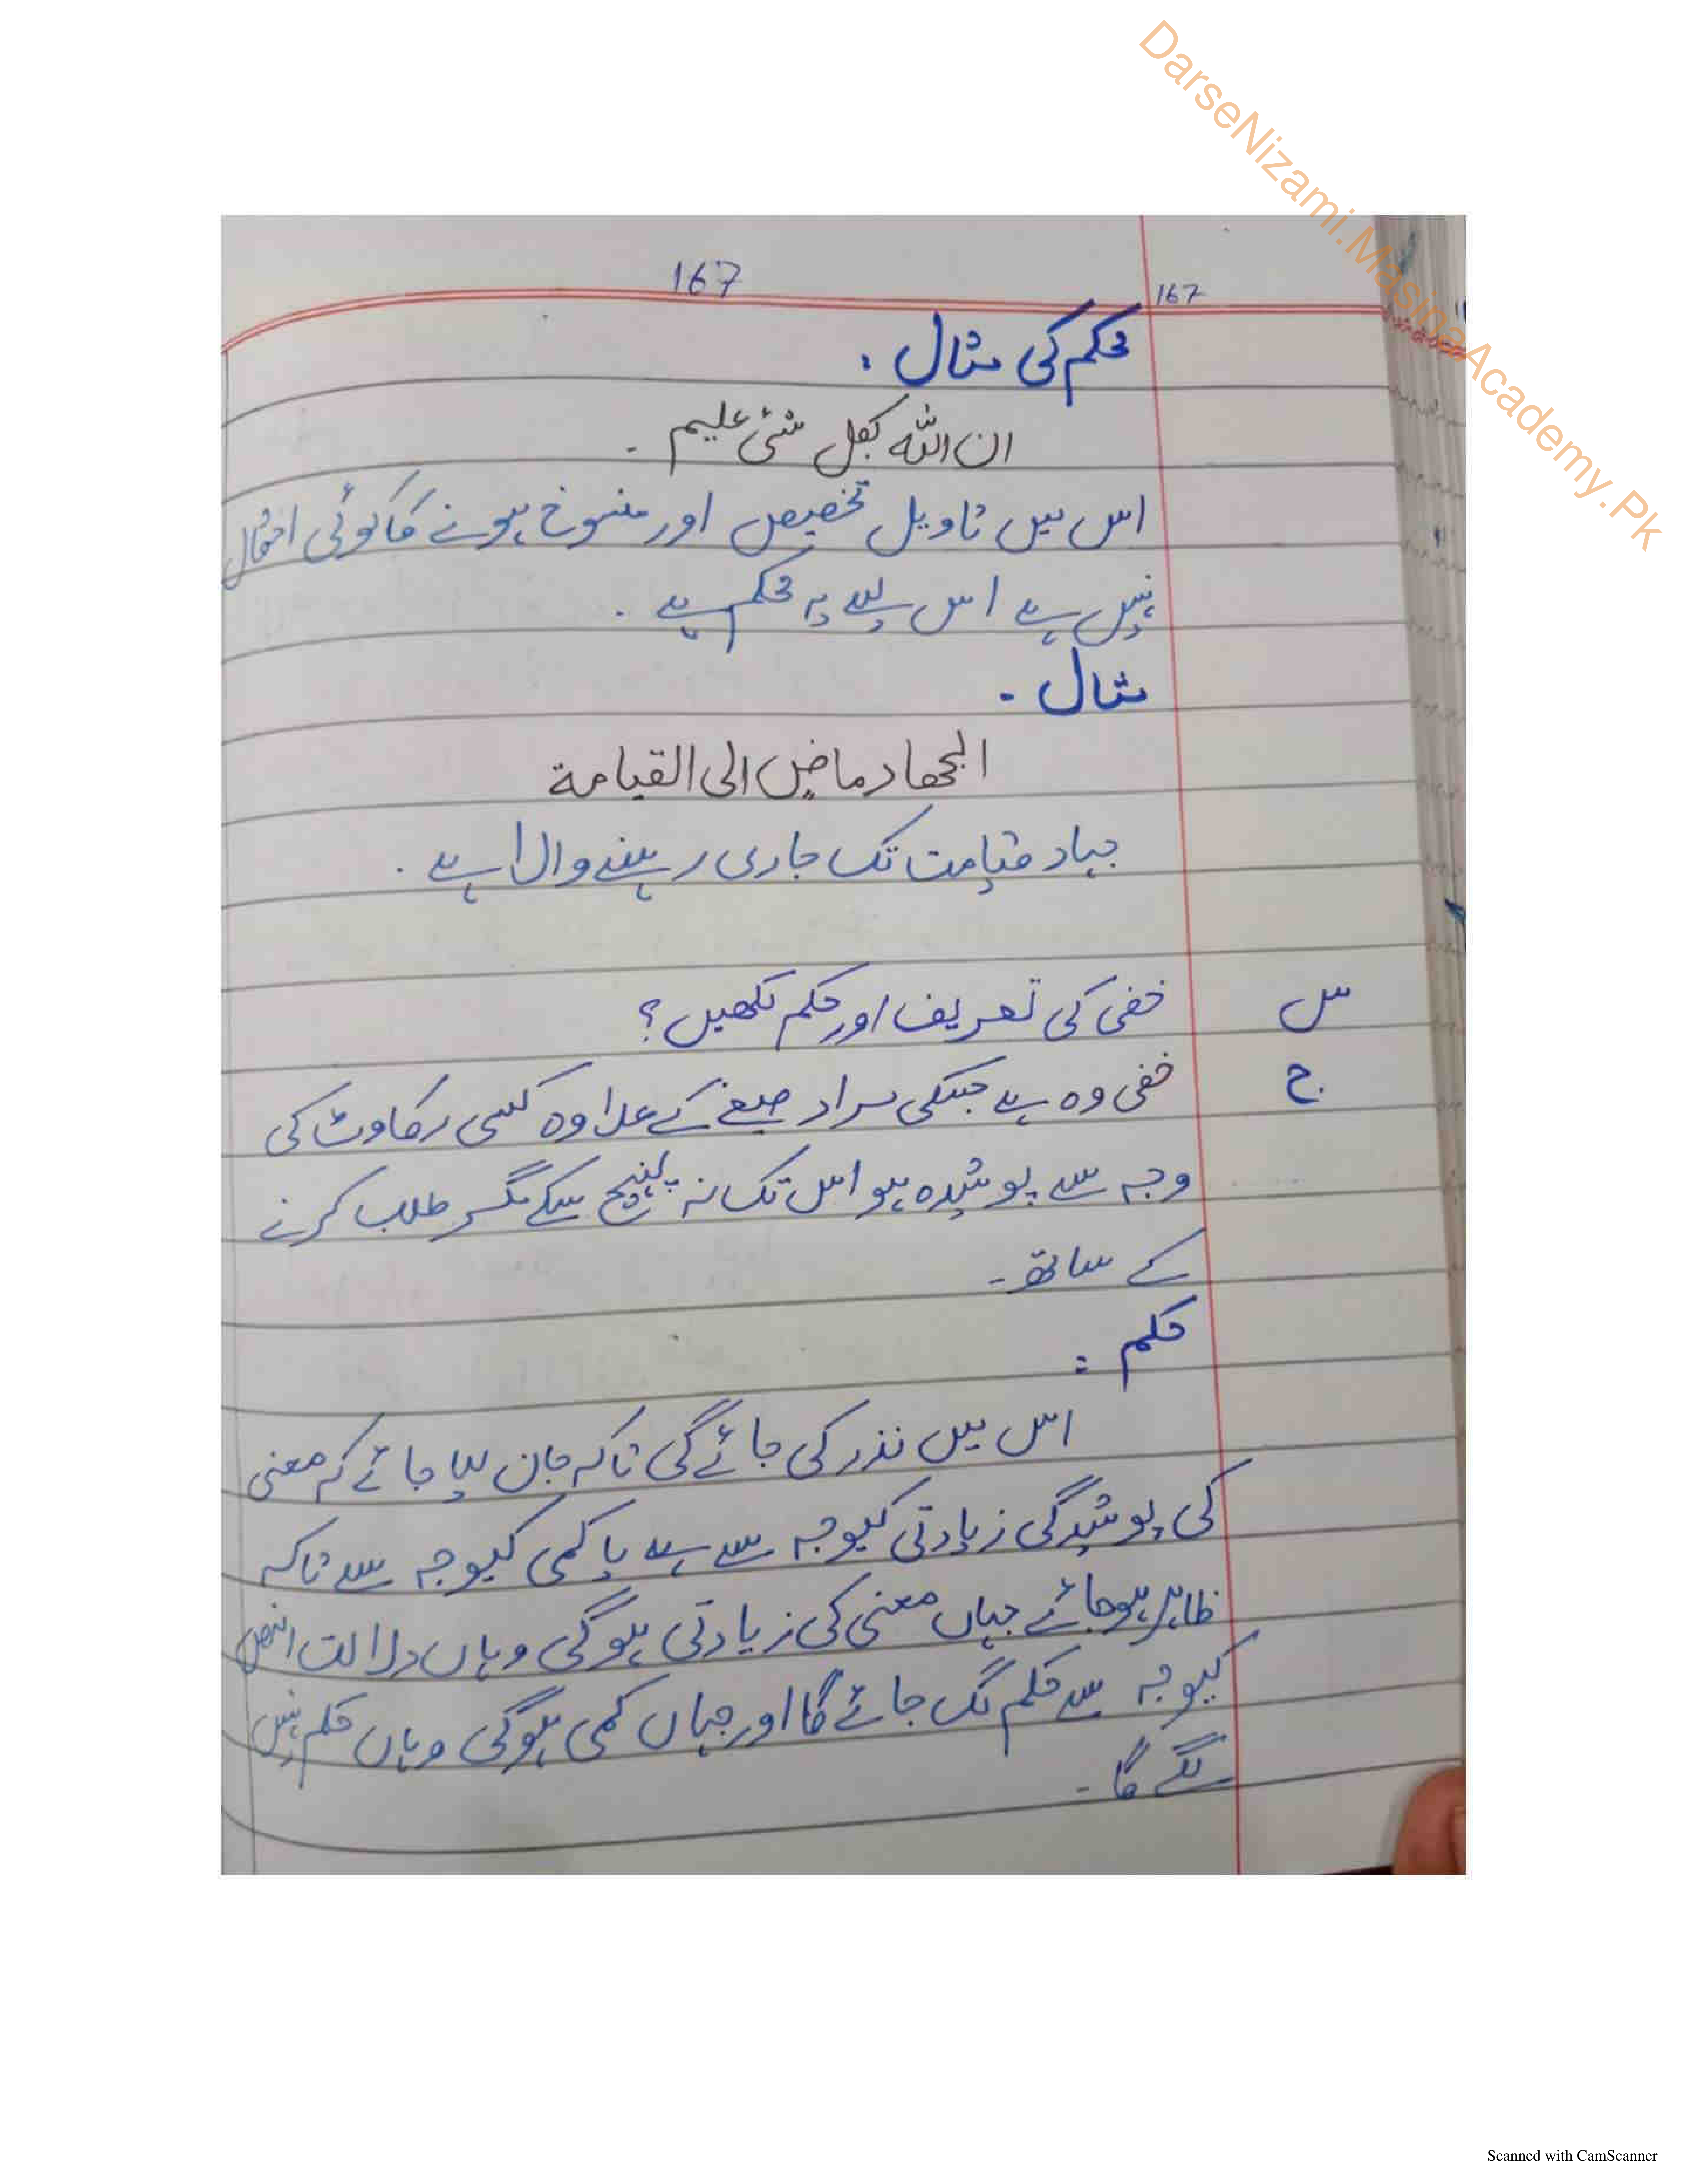 DarseNizami.MasjidAcademy.Pk
167
167
محکم کی مثال :
ان اللہ بکل شئی علیم ۔
اس میں تاویل تخصیص اور منسوخ ہونے کا کوئی احتمال
نہیں ہے اس لیے یہ محکم ہے ۔
مثال ۔
الجھاد ماضٍ الی القیامة
جہاد قیامت تک جاری رہنے والا ہے ۔
س خفی کی تعریف اور حکم لکھیں؟
ج خفی وہ ہے جسکی مراد صیغے کے علاوہ کسی رکاوٹ کی
وجہ سے پوشیدہ ہو اس تک نہ پہنچ سکے مگر طلب کرنے
کے ساتھ ۔
حکم :
اس میں نذر کی جائے گی تاکہ جان لیا جائے کہ معنی
کی پوشیدگی زیادتی کیوجہ سے ہے یا کمی کیوجہ سے تاکہ
ظاہر ہو جائے جہاں معنی کی زیادتی ہو گی وہاں دلالت النص
کیوجہ سے حکم لگ جائے گا اور جہاں کمی ہو گی وہاں حکم نہیں
لگے گا ۔
Scanned with CamScanner